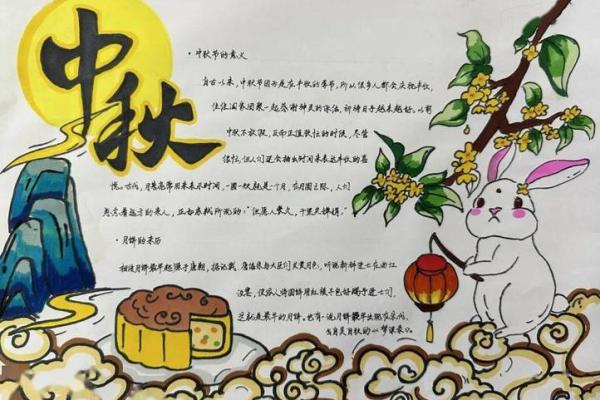 中秋
·中秋节的意义
自古以来,中秋节因为是在丰收的季节,所以很多人都会庆祝丰收,
往往阖家团聚一起感谢神灵的保佑,祈祷日子越来越好。以前
中秋不放假,正而正值秋忙的时候,尽管
很忙,但人们还会抽出时间来表达丰收的喜
悦。古代,月亮是常用来表示时间,一圆一缺就是一个月,在月圆之际,人们
思念着远方的亲人,正如苏轼所说的:“但愿人长久,千里共婵娟。”
·月饼的来历
相传月饼最早起源于唐朝,据记载,唐僖宗与大臣们欢赏月色,听说新科进士在曲江
设宴,便命人将圆饼用红绫子包好赐予进士们,
这就是最早的月饼。也有一说月饼最早出现在宋代,